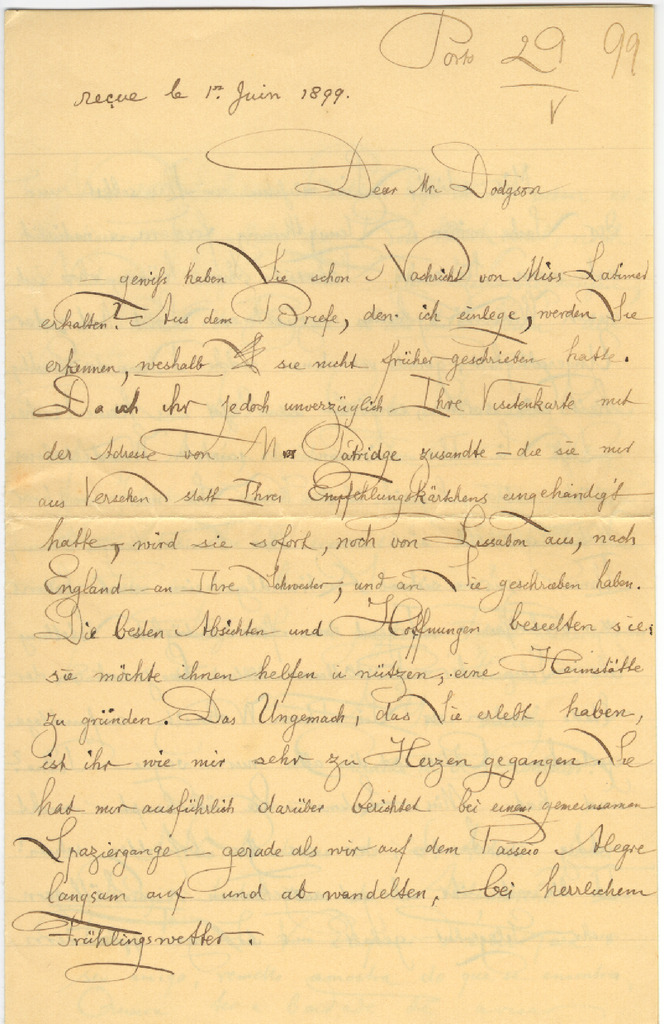 Porto 29/V 99
reçue le 1er Juin 1899.
Dear Mr. Dodgson
— gewiß haben Sie schon Nachricht von Miss Latimer
erhalten? Aus dem Briefe, den ich einlege, werden Sie
erkennen, weshalb sie nicht früher geschrieben hatte.
Da ich ihr jedoch unverzüglich Ihre Visitenkarte mit
der Adresse von Mr Patridge zusandte — die sie mir
aus Versehen statt Ihres Empfehlungskärtchens eingehändigt
hatte, wird sie sofort, noch von Lissabon aus, nach
England an Ihre Schwester, und an Sie geschrieben haben.
Die besten Absichten und Hoffnungen beseelten sie:
sie möchte ihnen helfen u nützen, eine Heimstätte
zu gründen. Das Ungemach, das Sie erlebt haben,
ist ihr wie mir sehr zu Herzen gegangen. Sie
hat mir ausführlich darüber berichtet bei einem gemeinsamen
Spaziergange — gerade als wir auf dem Passeio Alegre
langsam auf und ab wandelten, bei herrlichem
Frühlingswetter.